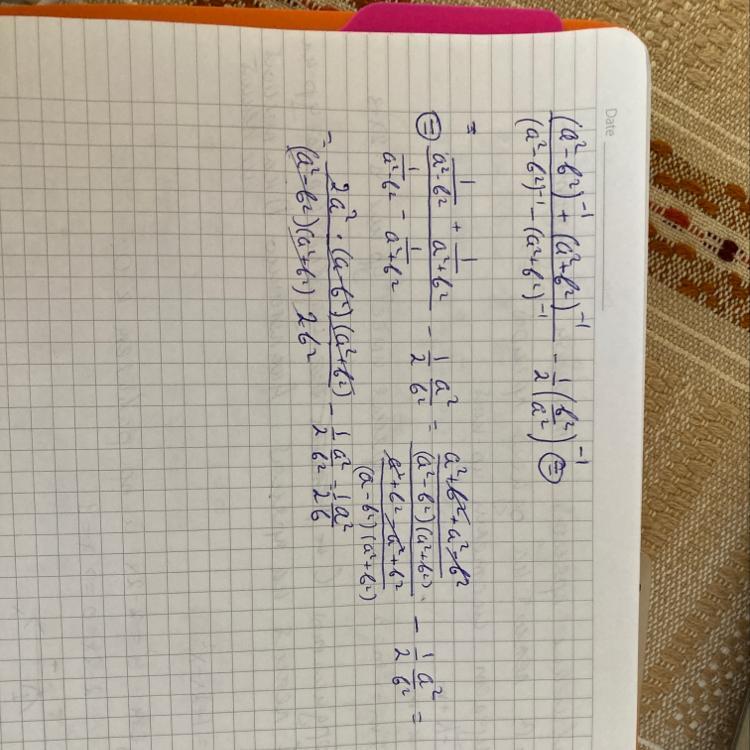 Date
((a²-b²)⁻¹ + (a²+b²)⁻¹)/((a²-b²)⁻¹ - (a²+b²)⁻¹) - 1/2 (b²/a²)⁻¹ ⊜
=
⊜ (1/(a²-b²) + 1/(a²+b²))/(1/(a²-b²) - 1/(a²+b²)) - 1/2 a²/b² = ((a²+b²+a²-b²)/((a²-b²)(a²+b²)))/((a²+b²-a²+b²)/((a-b²)(a²+b²))) - 1/2 a²/b² =
= (2a² · (a-b²)(a²+b²))/((a²-b²)(a²+b²) 2b²) - 1/2 a²/b² - 1/2 a²/b